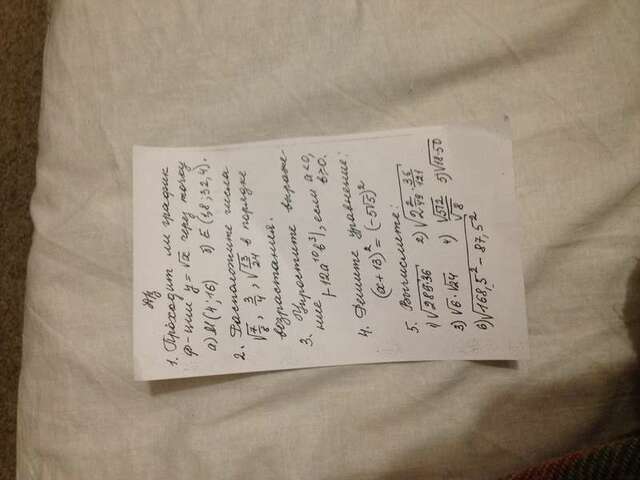 д/з
1. Проходит ли график
ф-ции y = √x через точку
а) А(4; 16) б) Е(1,8; 32,4).
2. Расположите числа
√7/8, 3/4, √13/24 в порядке
возрастания.
3. Упростите выраже-
ние |-12a¹⁰b³|, если a<0,
b>0.
4. Решите уравнение:
(x+13)² = (-5√3)²
5. Вычислите:
1) √28636 2) √(2 2/49 · 36/121)
3) √6 · √24 4) √512/√8 5) √18·50
6) √168,5² - 87,5²